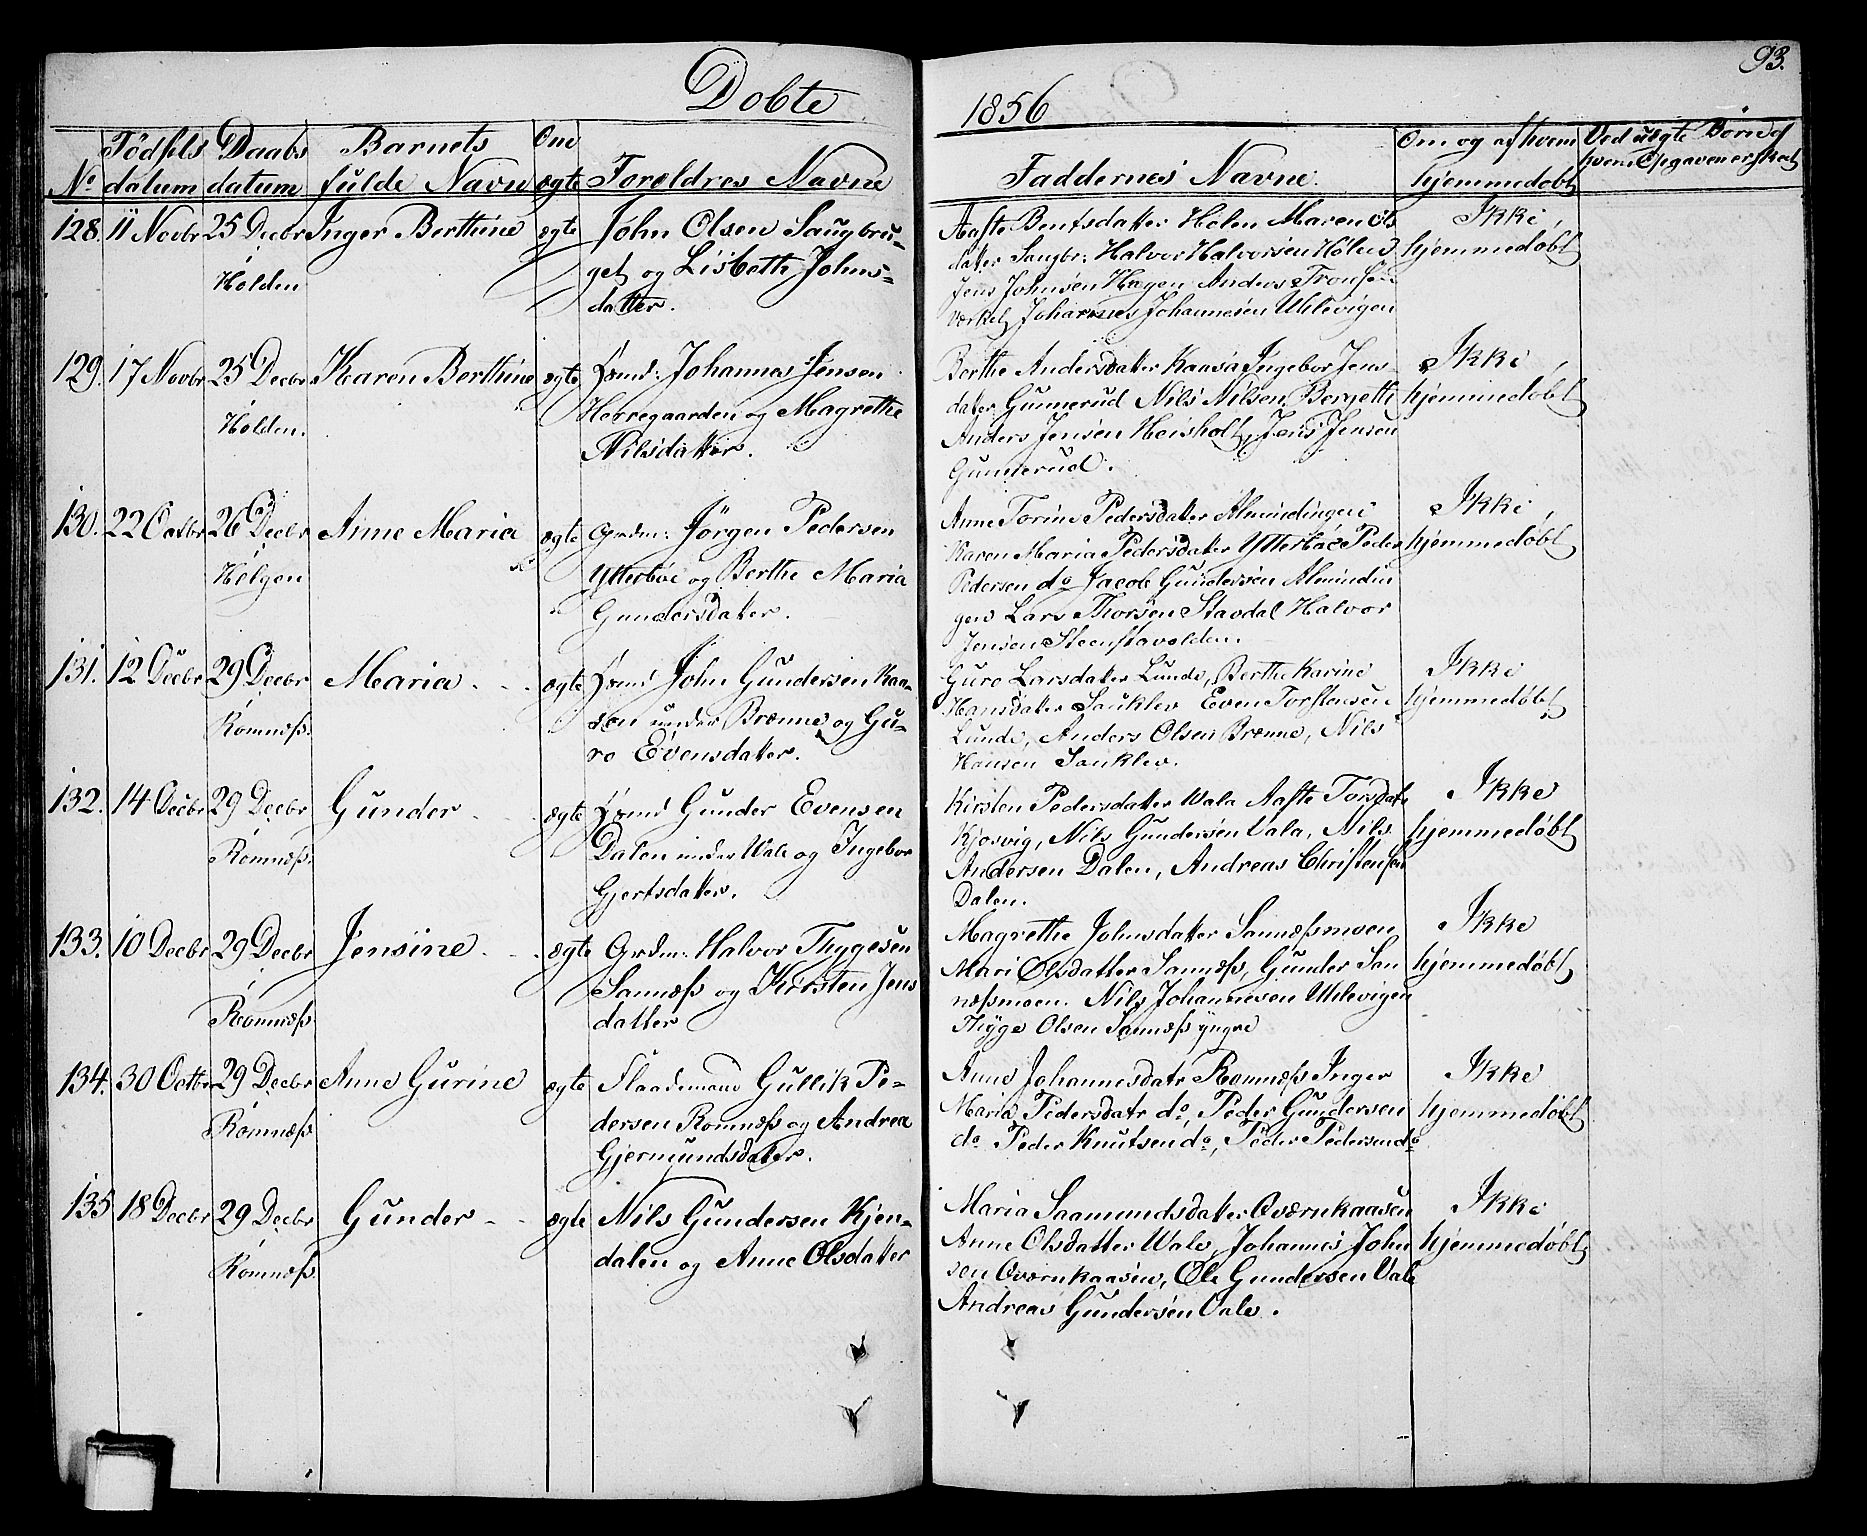 Dobte
1856
93.
No
Födsels datum
Daabs datum
Barnets fulde Navn
Om ægte
Foreldres Navne
Faddernes Navne.
Om og af hvem hjemmedøbt
Ved uegte Børn af hvem Opgaven er skeet
128. 11 Novbr 25 Decbr Inger Berthine ægte John Olsen Saugbru-
i Holden
get og Lisbeth Johns-
datter.
Aaste Bentsdatter Holen Maren Ols
datter Saugbr: Halvor Halvorsen Holen
Jens Johnsen Hagen Anders Tronsen
Værket, Johannes Johannesen Uhlevigen
Ikke
hjemmedøbt
129. 17 Novbr 25 Decbr Karen Berthine ægte Lœmd: Johannes Jensen
i Holden.
Herregaarden og Magrethe
Nilsdatter.
Berthe Andersdatter Kaasa Ingebor Jens
datter Gunnerud Nils Nilsen Bergeth
Anders Jensen Heisholt, Jens Jensen
Gunnerud.
Ikke
hjemmedøbt
130. 22 Octbr 26 Decbr Anne Maria ægte Grdm: Jörgen Pedersen
Helgen
Ytterböe og Berthe Maria
Gundersdatter.
Anne Torine Pedersdatter Almindingen
Karen Maria Pedersdatter Ytterböe Peder
Pedersen do Jacob Gundersen Almindin
gen Lars Thorsen Stavdal Halvor
Jensen Steenstavolden.
Ikke
hjemmedøbt
131. 12 Decbr 29 Decbr Maria ægte Lœmd John Gundersen Kaa-
i Romnæs.
sen under Brenne og Gu-
ro Evensdatter.
Guro Larsdatter Lunde, Berthe Karine
Hansdatter Sauklev Even Torstensen
Lunde, Anders Olsen Brenne, Nils
Hansen Sauklev.
Ikke
hjemmedøbt
132. 14 Decbr 29 Decbr Gunder ægte Lœmd Gunder Evensen
i Romnæs.
Dalen under Vale og Ingebor
Gjertsdatter.
Kirsten Pedersdatter Vala Aaste Torsdatr
Kjosvig, Nils Gundersen Vala, Nils
Andersen Dalen, Andreas Christensen
Dalen.
Ikke
hjemmedøbt
133. 10 Decbr 29 Decbr Jensine ægte Grdm: Halvor Thygesen
i Romnæs
Sannæs og Kirsten Jens
datter
Magrethe Johnsdatter Sannæsmoen
Mari Olsdatter Sannæs, Gunder San
næsmoen. Nils Johannesen Uhlevigen
Thyge Olsen Sannæs yngre
Ikke
hjemmedøbt
134. 30 Octbr 29 Decbr Anne Gurine ægte Flaademand Gullik Pe-
i Romnæs
dersen Romnæs og Andrea
Gjermundsdater.
Anne Johannesdatr Romnæs Inger
Maria Pedersdatr do, Peder Gundersen
do Peder Knutsen do, Peder Pedersen do
Ikke
hjemmedøbt
135 18 Decbr 29 Decbr Gunder ægte Nils Gundersen Kjen-
i Romnæs.
dalen og Anne Olsdatter
Maria Saamundsdatter Qværnkaasen
Anne Olsdatter Vale, Johannes John
sen Qværnkaasen, Ole Gundersen Vale
Andreas Gundersen Vale.
Ikke
hjemmedøbt